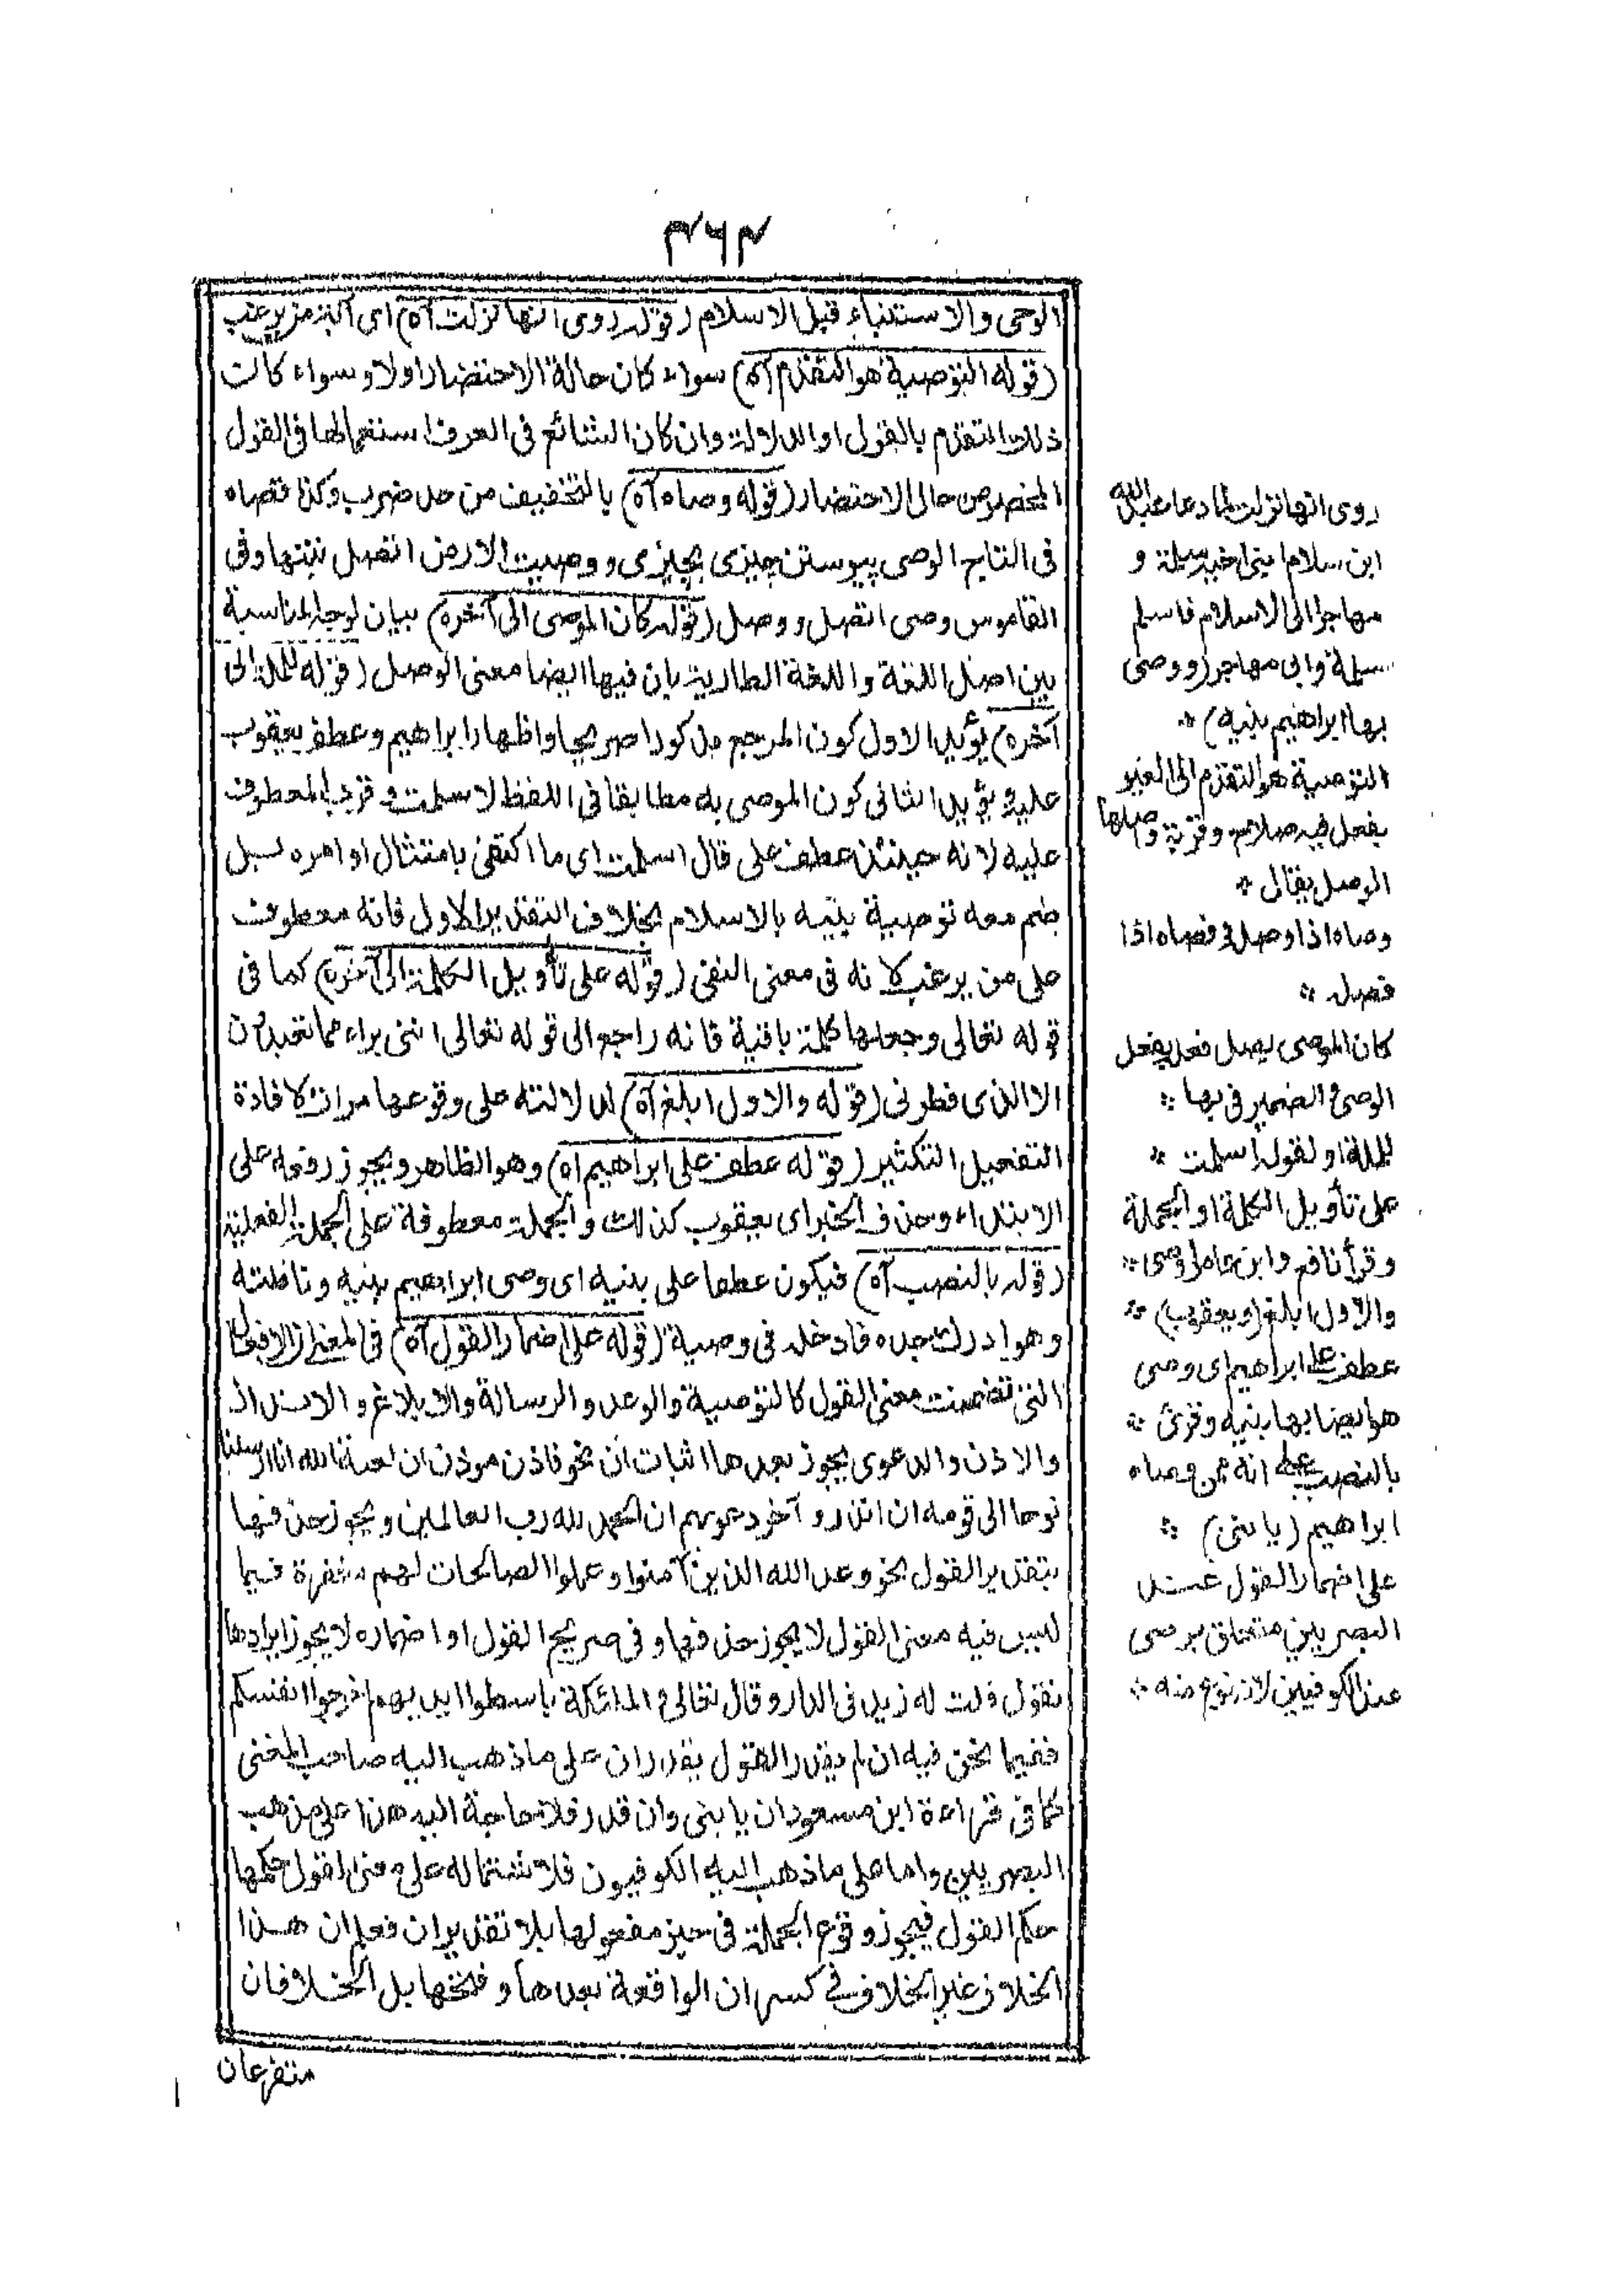 ٣٦٣
الوحى والاستنباء قبل الاسلام (قوله روى انها نزلت آه) اى آية من يرغب
(قوله التوصية هو التقدم آه) سواء كان حالة الاحتضار اولا وسواء كانت
ذلك التقدم بالقول او الدلالة وان كان الشائع فى العرف استعمالها فى القول
المخصوص حال الاحتضار (قوله وصاه آه) بالتخفيف من حد ضرب وكذا فصاه
فى التاج الوصى پيوستن چيزى بچيزى ووصيت الارض اتصل نبتها وفى
القاموس وصى اتصل ووصل (قوله كان الموصى الى آخره) بيان لوجه المناسبة
بين اصل اللغة واللغة الطارية بان فيها ايضا معنى الوصل (قوله للملة الى
آخره) يؤيد الاول كون المرجع مذكورا صريحا واظهار ابراهيم وعطف يعقوب
عليه ويؤيد الثانى كون الموصى به مطابقا فى اللفظ لاسلمت وقرب المعطوف
عليه لانه حينئذ عطف على قال اسلمت اى ما اكتفى بامتثال اوامره بل
ضم معه توصية بنيه بالاسلام بخلاف التقدير الاول فانه معطوف
على من يرغب لانه فى معنى النفى (قوله على تأويل الكلمة الى آخره) كما فى
قوله تعالى وجعلها كلمة باقية فانه راجع الى قوله تعالى اننى براء مما تعبدون
الا الذى فطرنى (قوله والاول ابلغ آه) لدلالته على وقوعها مرات لافادة
التفعيل التكثير (قوله عطف على ابراهيم آه) وهو الظاهر ويجوز رفعه على
الابتداء وحذف الخبر اى يعقوب كذلك والجملة معطوفة على الجملة الفعلية
(قوله بالنصب آه) فيكون عطفا على بنيه اى وصى ابراهيم بنيه ونافلته
وهو ادرك جده فادخله فى وصية (قوله على اضمار القول آه) فى المغنى ان الافعال
التى تضمنت معنى القول كالتوصية والوعد والرسالة والابلاغ والانذار
والاذن والدعوى يجوز بعدها اثبات أن نحو فاذن موذن ان لعنة الله انا ارسلنا
نوحا الى قومه ان انذر و آخر دعويهم ان الحمد لله رب العالمين ويجوز حذفها
بتقدير القول نحو وعد الله الذين آمنوا وعملوا الصالحات لهم مغفرة فيما
ليس فيه معنى القول لا يجوز حذفها وفى صريح القول او اضماره لا يجوز ايرادها
نقول قلت له زيد فى الدار وقال تعالى والملائكة باسطوا ايديهم اخرجوا انفسكم
ففيما نحن فيه ان لم يقدر القول يقدر ان على ما ذهب اليه صاحب المغنى
كما فى قراءة ابن مسعود ان يا بنى وان قدر فلا حاجة اليه هذا على مذهب
البصريين واما على ما ذهب اليه الكوفيون فلاشتماله على معنى القول حكمها
حكم القول فيجوز وقوع الجملة فى حيز مفعولها بلا تقدير ان فعلم ان هذا
الخلاف غير الخلاف فى كسر ان الواقعة بعدها وفتحها بل الخلافان
متفرعان
روى انها نزلت لما دعا عبد الله
ابن سلام ابنى اخيه سلمة و
مهاجرا الى الاسلام فاسلم
سلمة وابى مهاجر (ووصى
بها ابراهيم بنيه) *
التوصية هو التقدم الى الغير
بفعل فيه صلاح وقربة واصلها
الوصل يقال *
وصاه اذا وصله وفصاه اذا
فصله *
كان الموصى يصل فعله بفعل
الوصى والضمير فى بها *
للملة او لقوله اسلمت *
على تأويل الكلمة او الجملة
وقرأ نافع وابن عامر اوصى *
والاول ابلغ (ويعقوب) *
عطف على ابراهيم اى وصى
هو ايضا بها بنيه وقرئ *
بالنصب على انه ممن وصاه
ابراهيم (يا بنى) *
على اضمار القول عند
البصريين متعلق بوصى
عند الكوفيين لانه نوع منه *